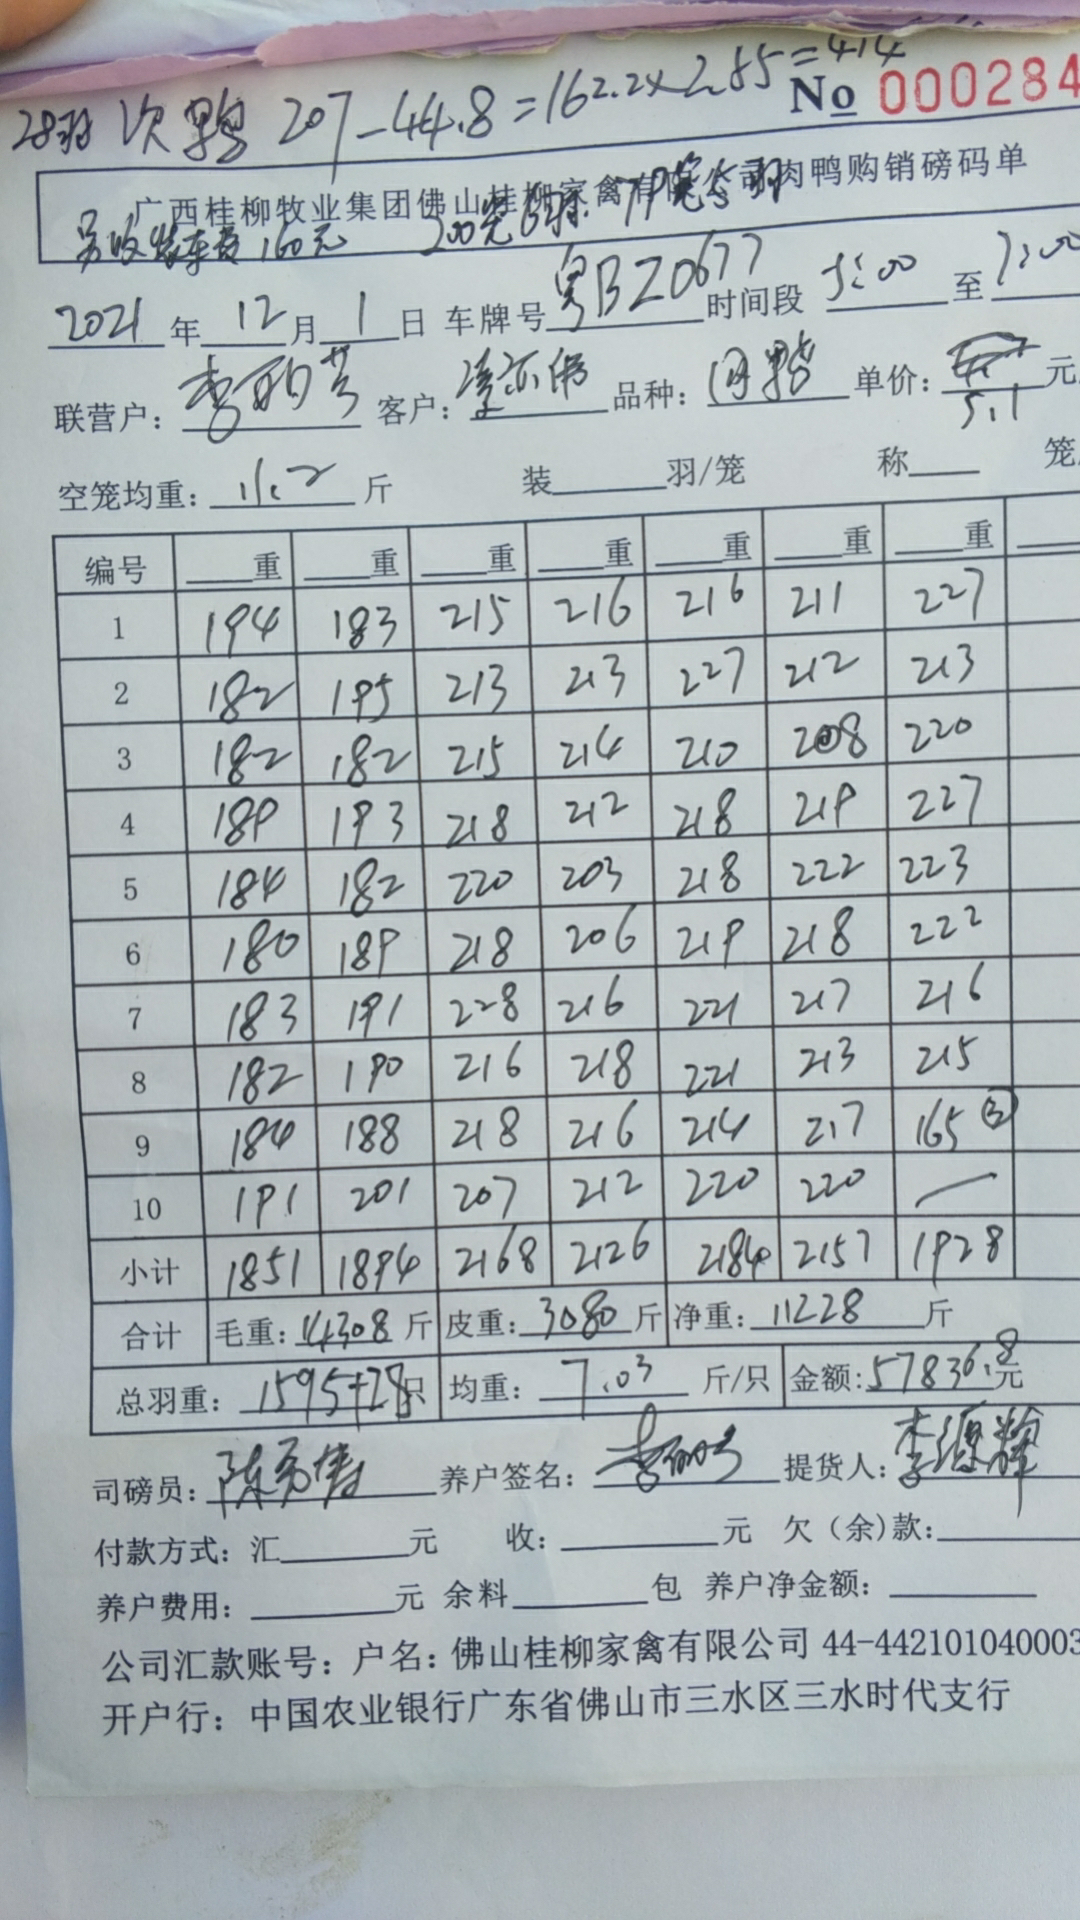 28羽 次鸭 207-44.8=162.2×2.85=414
No 000284
广西桂柳牧业集团佛山桂柳家禽有限公司肉鸭购销磅码单
另收装车费160元 200
2021年12月1日 车牌号粤BZ0677 时间段5:00至7:00
联营户: 客户: 品种: 单价: 5.1 元
空笼均重: 11.2 斤 装 羽/笼 称 笼
编号 重 重 重 重 重 重 重
1 194 183 215 216 216 211 227
2 182 195 213 213 227 212 213
3 182 182 215 214 210 208 220
4 189 193 218 212 218 219 227
5 184 182 220 203 218 222 223
6 180 189 218 206 219 218 222
7 183 191 228 216 221 217 216
8 182 190 216 218 221 213 215
9 184 188 218 216 214 217 165 ③
10 191 201 207 212 220 220 —
小计 1851 1894 2168 2126 2184 2157 1928
合计 毛重: 14308 斤 皮重: 3080 斤 净重: 11228 斤
总羽重: 1595+28只 均重: 7.03 斤/只 金额: 57836.8元
司磅员: 养户签名: 提货人: 李源辉
付款方式: 汇 元 收: 元 欠(余)款:
养户费用: 元 余料 包 养户净金额:
公司汇款账号: 户名: 佛山桂柳家禽有限公司 44-442101040003
开户行: 中国农业银行广东省佛山市三水区三水时代支行